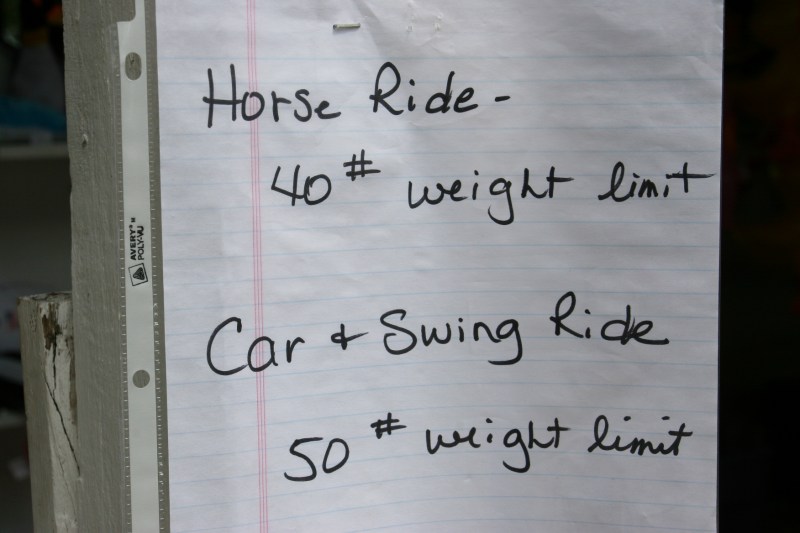 Horse Ride -
40# weight limit
Car & Swing Ride
50# weight limit
AVERY® N
POLY-VU